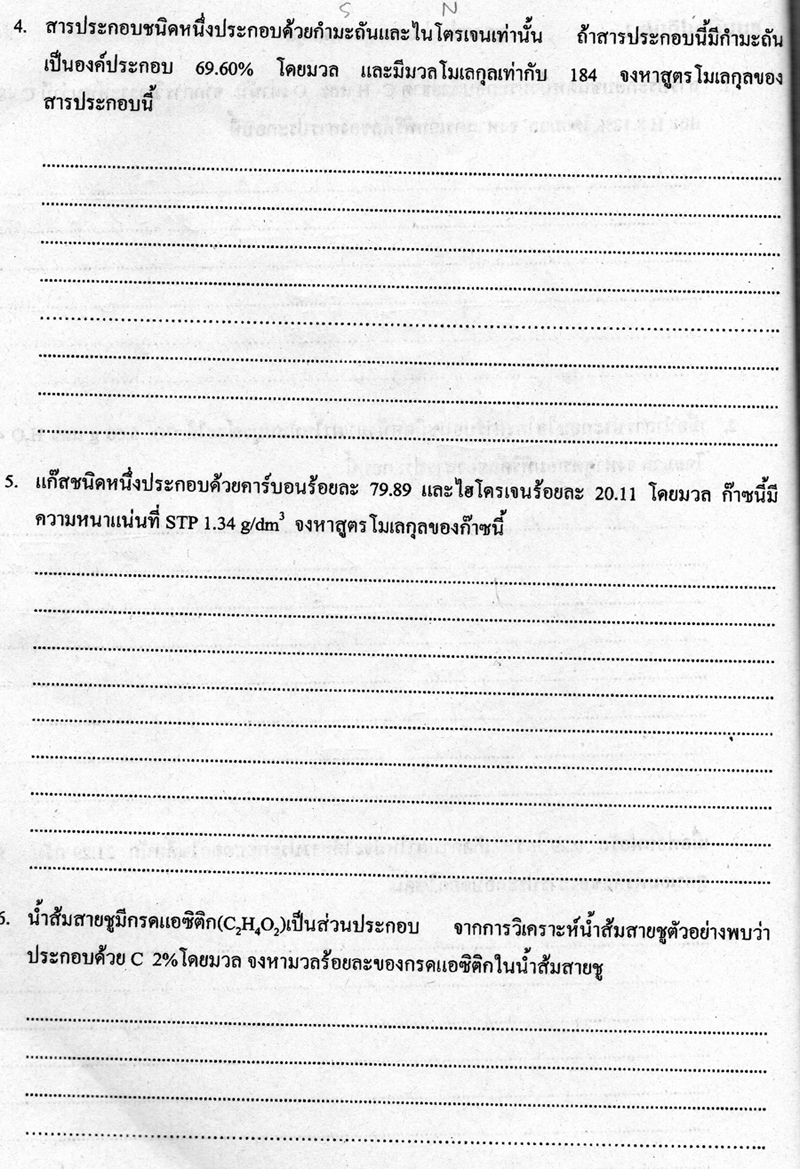 S N
4. สารประกอบชนิดหนึ่งประกอบด้วยกำมะถันและไนโตรเจนเท่านั้น ถ้าสารประกอบนี้มีกำมะถัน
เป็นองค์ประกอบ 69.60% โดยมวล และมีมวลโมเลกุลเท่ากับ 184 จงหาสูตรโมเลกุลของ
สารประกอบนี้
5. แก๊สชนิดหนึ่งประกอบด้วยคาร์บอนร้อยละ 79.89 และไฮโดรเจนร้อยละ 20.11 โดยมวล ก๊าซนี้มี
ความหนาแน่นที่ STP 1.34 g/dm³ จงหาสูตรโมเลกุลของก๊าซนี้
6. น้ำส้มสายชูมีกรดแอซิติก(C₂H₄O₂)เป็นส่วนประกอบ จากการวิเคราะห์น้ำส้มสายชูตัวอย่างพบว่า
ประกอบด้วย C 2%โดยมวล จงหามวลร้อยละของกรดแอซิติกในน้ำส้มสายชู